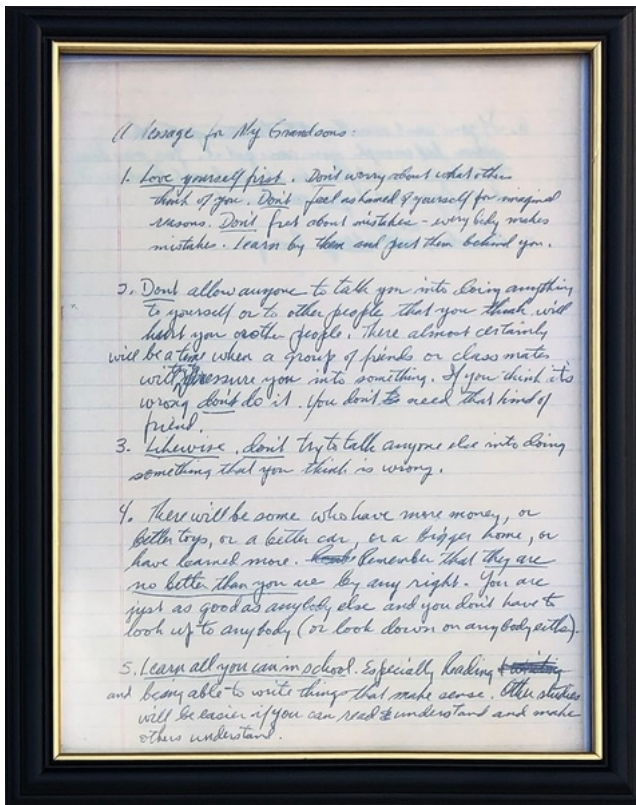 A Message for My Grandsons:
1. Love yourself first. Don't worry about what others
think of you. Don't feel ashamed of yourself for
reasons. Don't fret about mistakes - everybody makes
mistakes. Learn by them and put them behind you.
2. Dont allow anyone to talk you into doing anything
to yourself or to other people that you think will
hurt you or other people. There almost certainly
will be a time when a group of friends or class mates
will pressure you into something. If you think it's
wrong dont do it. You don't need that kind of
friend.
3. Likewise, don't try to talk anyone else into doing
something that you think is wrong.
4. There will be some who have more money, or
better toys, or a better car, or a bigger home, or
have learned more. Remember that they are
no better than you are by any right. You are
just as good as anybody else and you don't have to
look up to anybody (or look down on anybody either).
5. Learn all you can in school. Especially Reading
and being able to write things that make sense. Other studies
will be easier if you can read & understand and make
others understand.